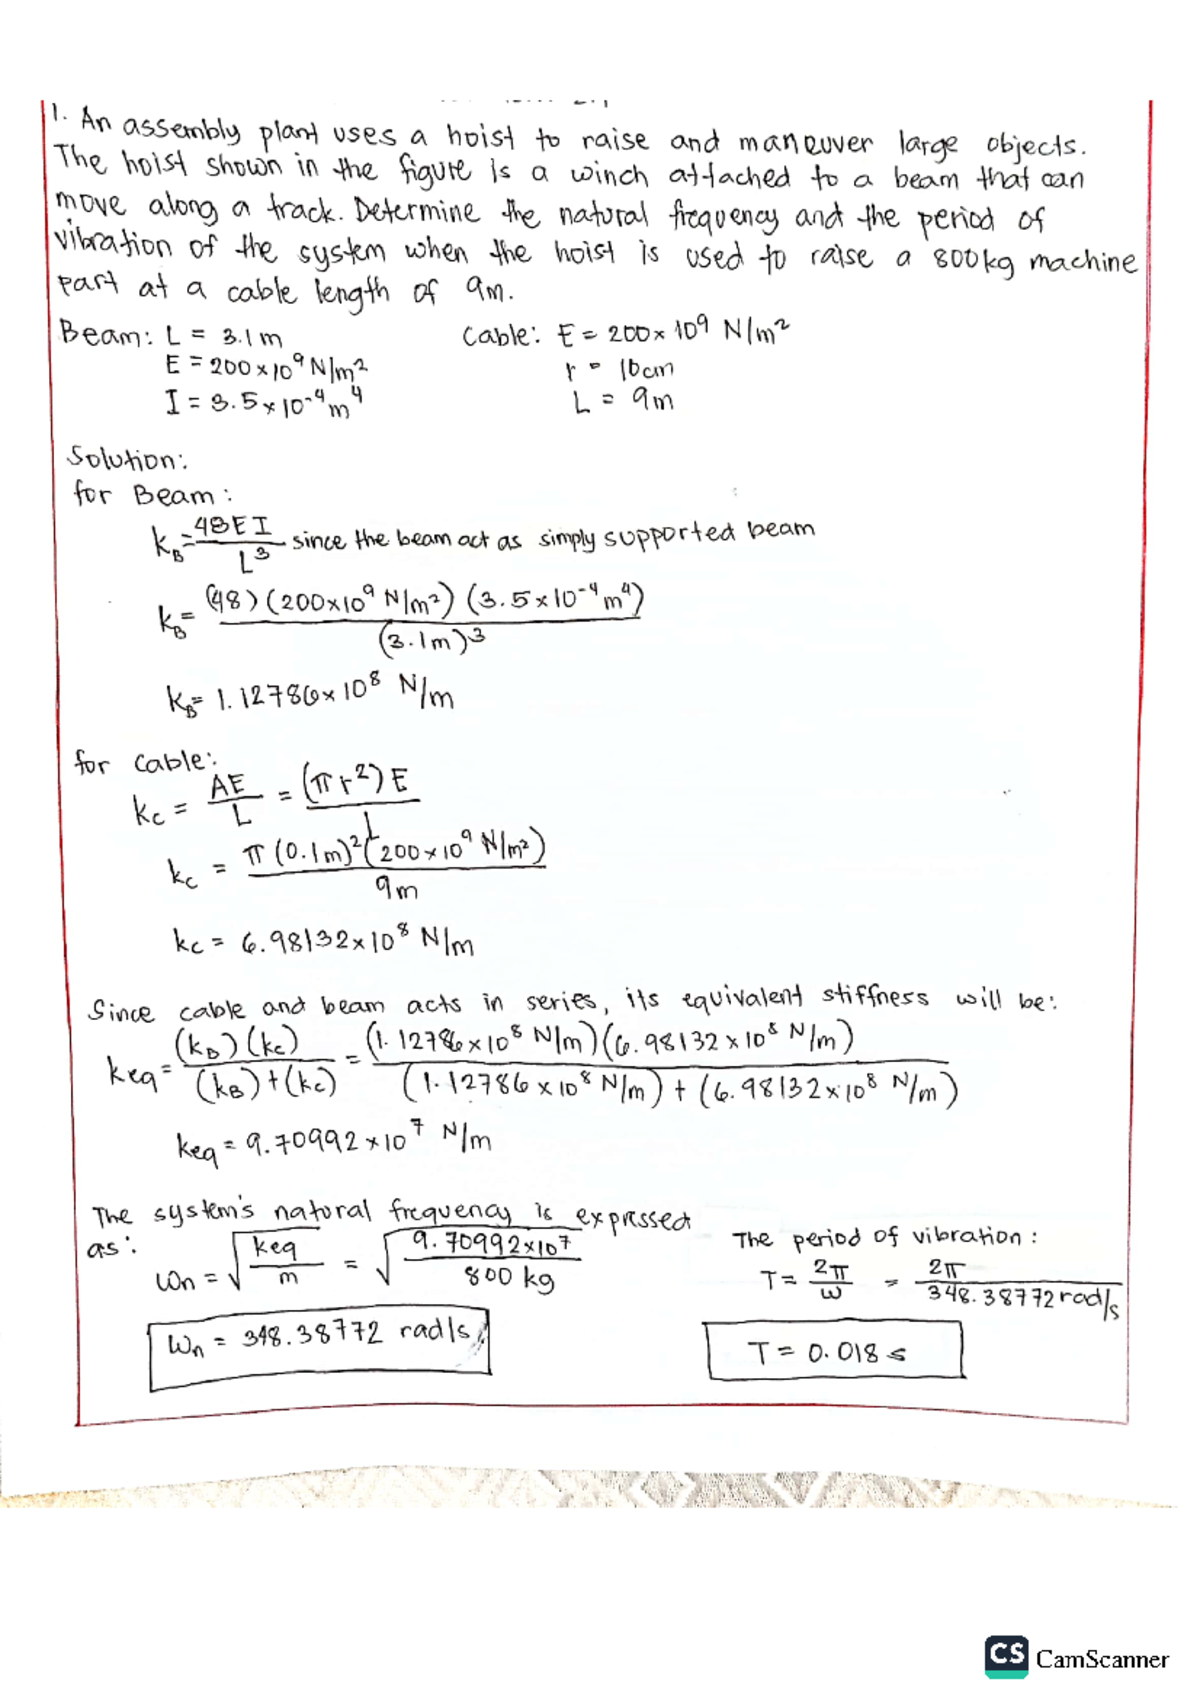 1. An assembly plant uses a hoist to raise and maneuver large objects.
The hoist shown in the figure is a winch attached to a beam that can
move along a track. Determine the natural frequency and the period of
vibration of the system when the hoist is used to raise a 800kg machine
part at a cable length of 9m.
Beam: L = 3.1m
E = 200 × 10⁹ N/m²
I = 3.5 × 10⁻⁴ m⁴
Cable: E = 200 × 10⁹ N/m²
r = 10cm
L = 9m
Solution:
for Beam:
k_B = 48EI / L³ since the beam act as simply supported beam
k_B = (48)(200×10⁹ N/m²)(3.5×10⁻⁴ m⁴) / (3.1m)³
k_B = 1.12786×10⁸ N/m
for Cable:
kc = AE / L = (πr²)E / L
kc = π(0.1m)²(200×10⁹ N/m²) / 9m
kc = 6.98132×10⁸ N/m
Since cable and beam acts in series, its equivalent stiffness will be:
keq = (k_B)(kc) / (k_B)+(kc) = (1.12786×10⁸ N/m)(6.98132×10⁸ N/m) / (1.12786×10⁸ N/m) + (6.98132×10⁸ N/m)
keq = 9.70992×10⁷ N/m
The system's natural frequency is expressed
as:
ωn = √(keq / m) = √(9.70992×10⁷ / 800 kg)
ωn = 348.38772 rad/s
The period of vibration:
T = 2π / ω = 2π / 348.38772 rad/s
T = 0.018 s
CS CamScanner